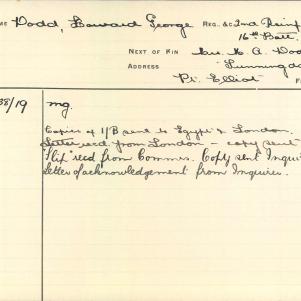 ME Dodd, Howard George REG. &c 2nd Reinf
16th Batt.
NEXT OF KIN Mrs. K. A. Dod
ADDRESS "Sunningda
Pt. Elliot F
38/19 mg.
Copies of 1/B sent to Egypt & London.
Letter recd. from London - copy sent
"Slip" recd from Commer. Copy sent Inqui
Letter of acknowledgement from Inquirer.